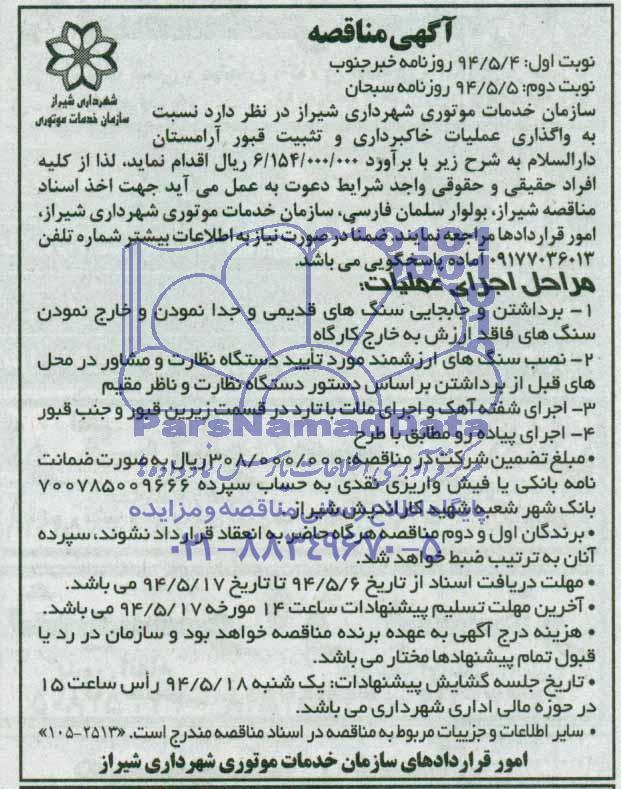 آگهی مناقصه
نوبت اول: ۹۴/۵/۴ روزنامه خبرجنوب
نوبت دوم: ۹۴/۵/۵ روزنامه سبحان
شهرداری شیراز
سازمان خدمات موتوری
سازمان خدمات موتوری شهرداری شیراز در نظر دارد نسبت
به واگذاری عملیات خاکبرداری و تثبیت قبور آرامستان
دارالسلام به شرح زیر با برآورد ۶/۱۵۴/۰۰۰/۰۰۰ ریال اقدام نماید، لذا از کلیه
افراد حقیقی و حقوقی واجد شرایط دعوت به عمل می آید جهت اخذ اسناد
مناقصه شیراز، بولوار سلمان فارسی، سازمان خدمات موتوری شهرداری شیراز،
امور قراردادها مراجعه نمایند. ضمنا در صورت نیاز به اطلاعات بیشتر شماره تلفن
۰۹۱۷۷۰۳۶۰۱۳ آماده پاسخگویی می باشد.
مراحل اجرای عملیات:
۱- برداشتن و جابجایی سنگ های قدیمی و جدا نمودن و خارج نمودن
سنگ های فاقد ارزش به خارج کارگاه
۲- نصب سنگ های ارزشمند مورد تأیید دستگاه نظارت و مشاور در محل
های قبل از برداشتن بر اساس دستور دستگاه نظارت و ناظر مقیم
۳- اجرای شفته آهک و اجرای ملات با تارد در قسمت زیرین قبور و جنب قبور
۴- اجرای پیاده رو مطابق با طرح
• مبلغ تضمین شرکت در مناقصه: ۳۰۸/۰۰۰/۰۰۰ ریال به صورت ضمانت
نامه بانکی یا فیش واریزی نقدی به حساب سپرده ۷۰۰۷۸۵۰۰۹۶۶۶
بانک شهر شعبه شهید کاراندیش شیراز.
• برندگان اول و دوم مناقصه هرگاه حاضر به انعقاد قرارداد نشوند، سپرده
آنان به ترتیب ضبط خواهد شد.
• مهلت دریافت اسناد از تاریخ ۹۴/۵/۶ تا تاریخ ۹۴/۵/۱۷ می باشد.
• آخرین مهلت تسلیم پیشنهادات ساعت ۱۴ مورخه ۹۴/۵/۱۷ می باشد.
• هزینه درج آگهی به عهده برنده مناقصه خواهد بود و سازمان در رد یا
قبول تمام پیشنهادها مختار می باشد.
• تاریخ جلسه گشایش پیشنهادات: یک شنبه ۹۴/۵/۱۸ رأس ساعت ۱۵
در حوزه مالی اداری شهرداری می باشد.
• سایر اطلاعات و جزییات مربوط به مناقصه در اسناد مناقصه مندرج است. «۲۵۱۳-۱۰۵»
امور قراردادهای سازمان خدمات موتوری شهرداری شیراز
ParsNamadData
پایگاه اطلاع رسانی مناقصه و مزایده
۰۲۱-۸۸۳۴۹۶۷۰-۵